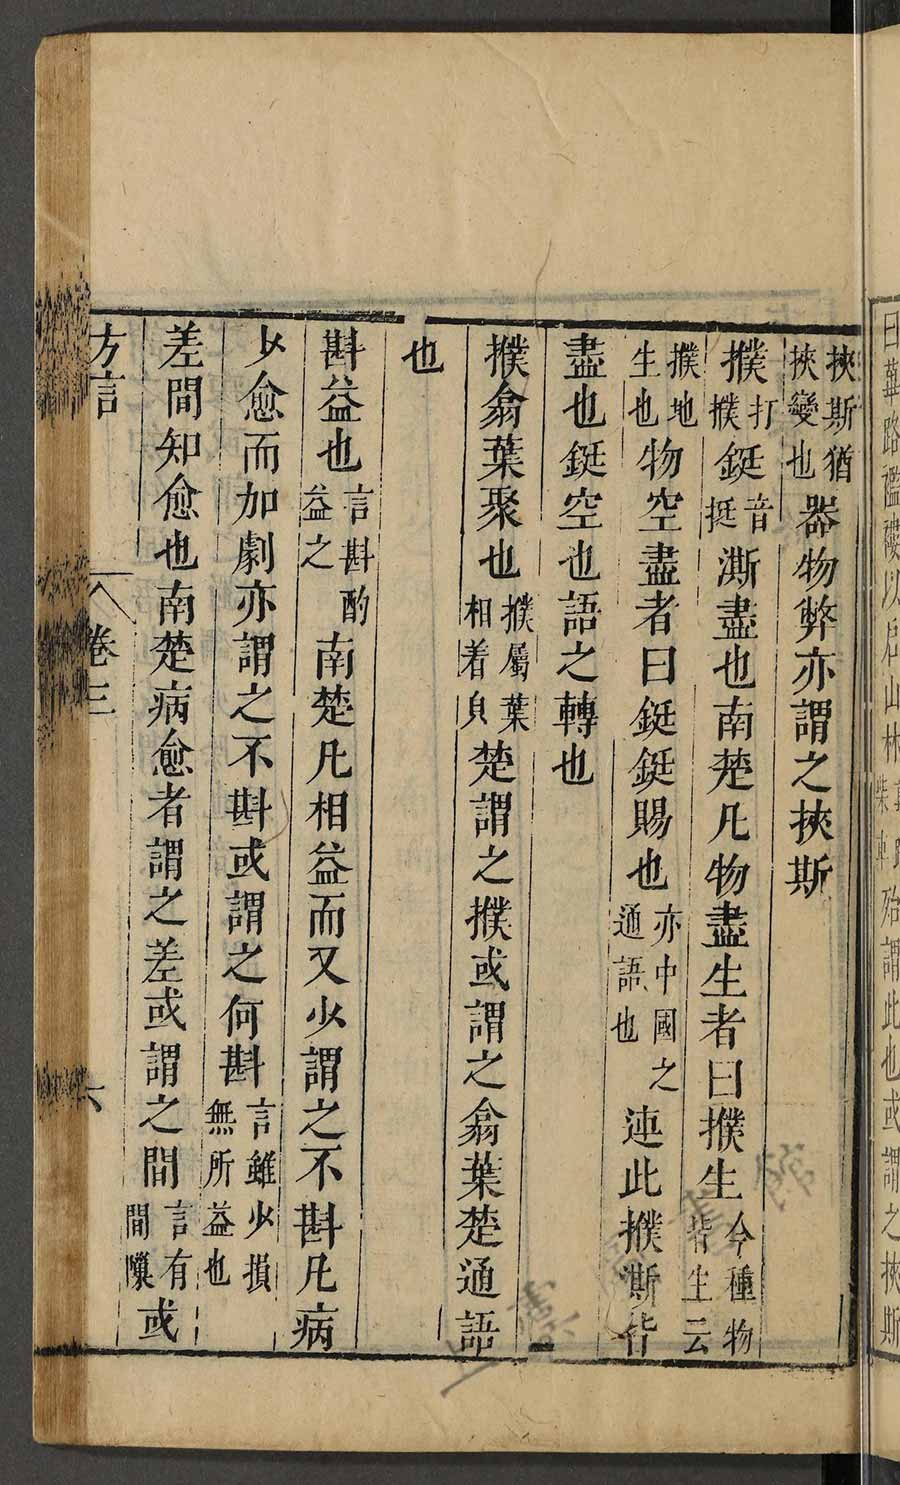 曰蓽路襤褸以启山林
殆謂此也或謂之挾斯
挾斯猶挾變也器物弊亦謂之挾斯
撲打撲鋌音挺澌盡也南楚凡物盡生者曰撲生今種物皆生云
撲地生也物空盡者曰鋌鋌賜也亦中國之通語也連此撲澌皆
盡也鋌空也語之轉也
撲翕葉聚也撲屬葉相着㒵楚謂之撲或謂之翕葉楚通語
也
斟益也言斟酌益之南楚凡相益而又少謂之不斟凡病
少愈而加劇亦謂之不斟或謂之何斟言雖少損無所益也
差間知愈也南楚病愈者謂之差或謂之間言有間隟或
方言
卷三
六